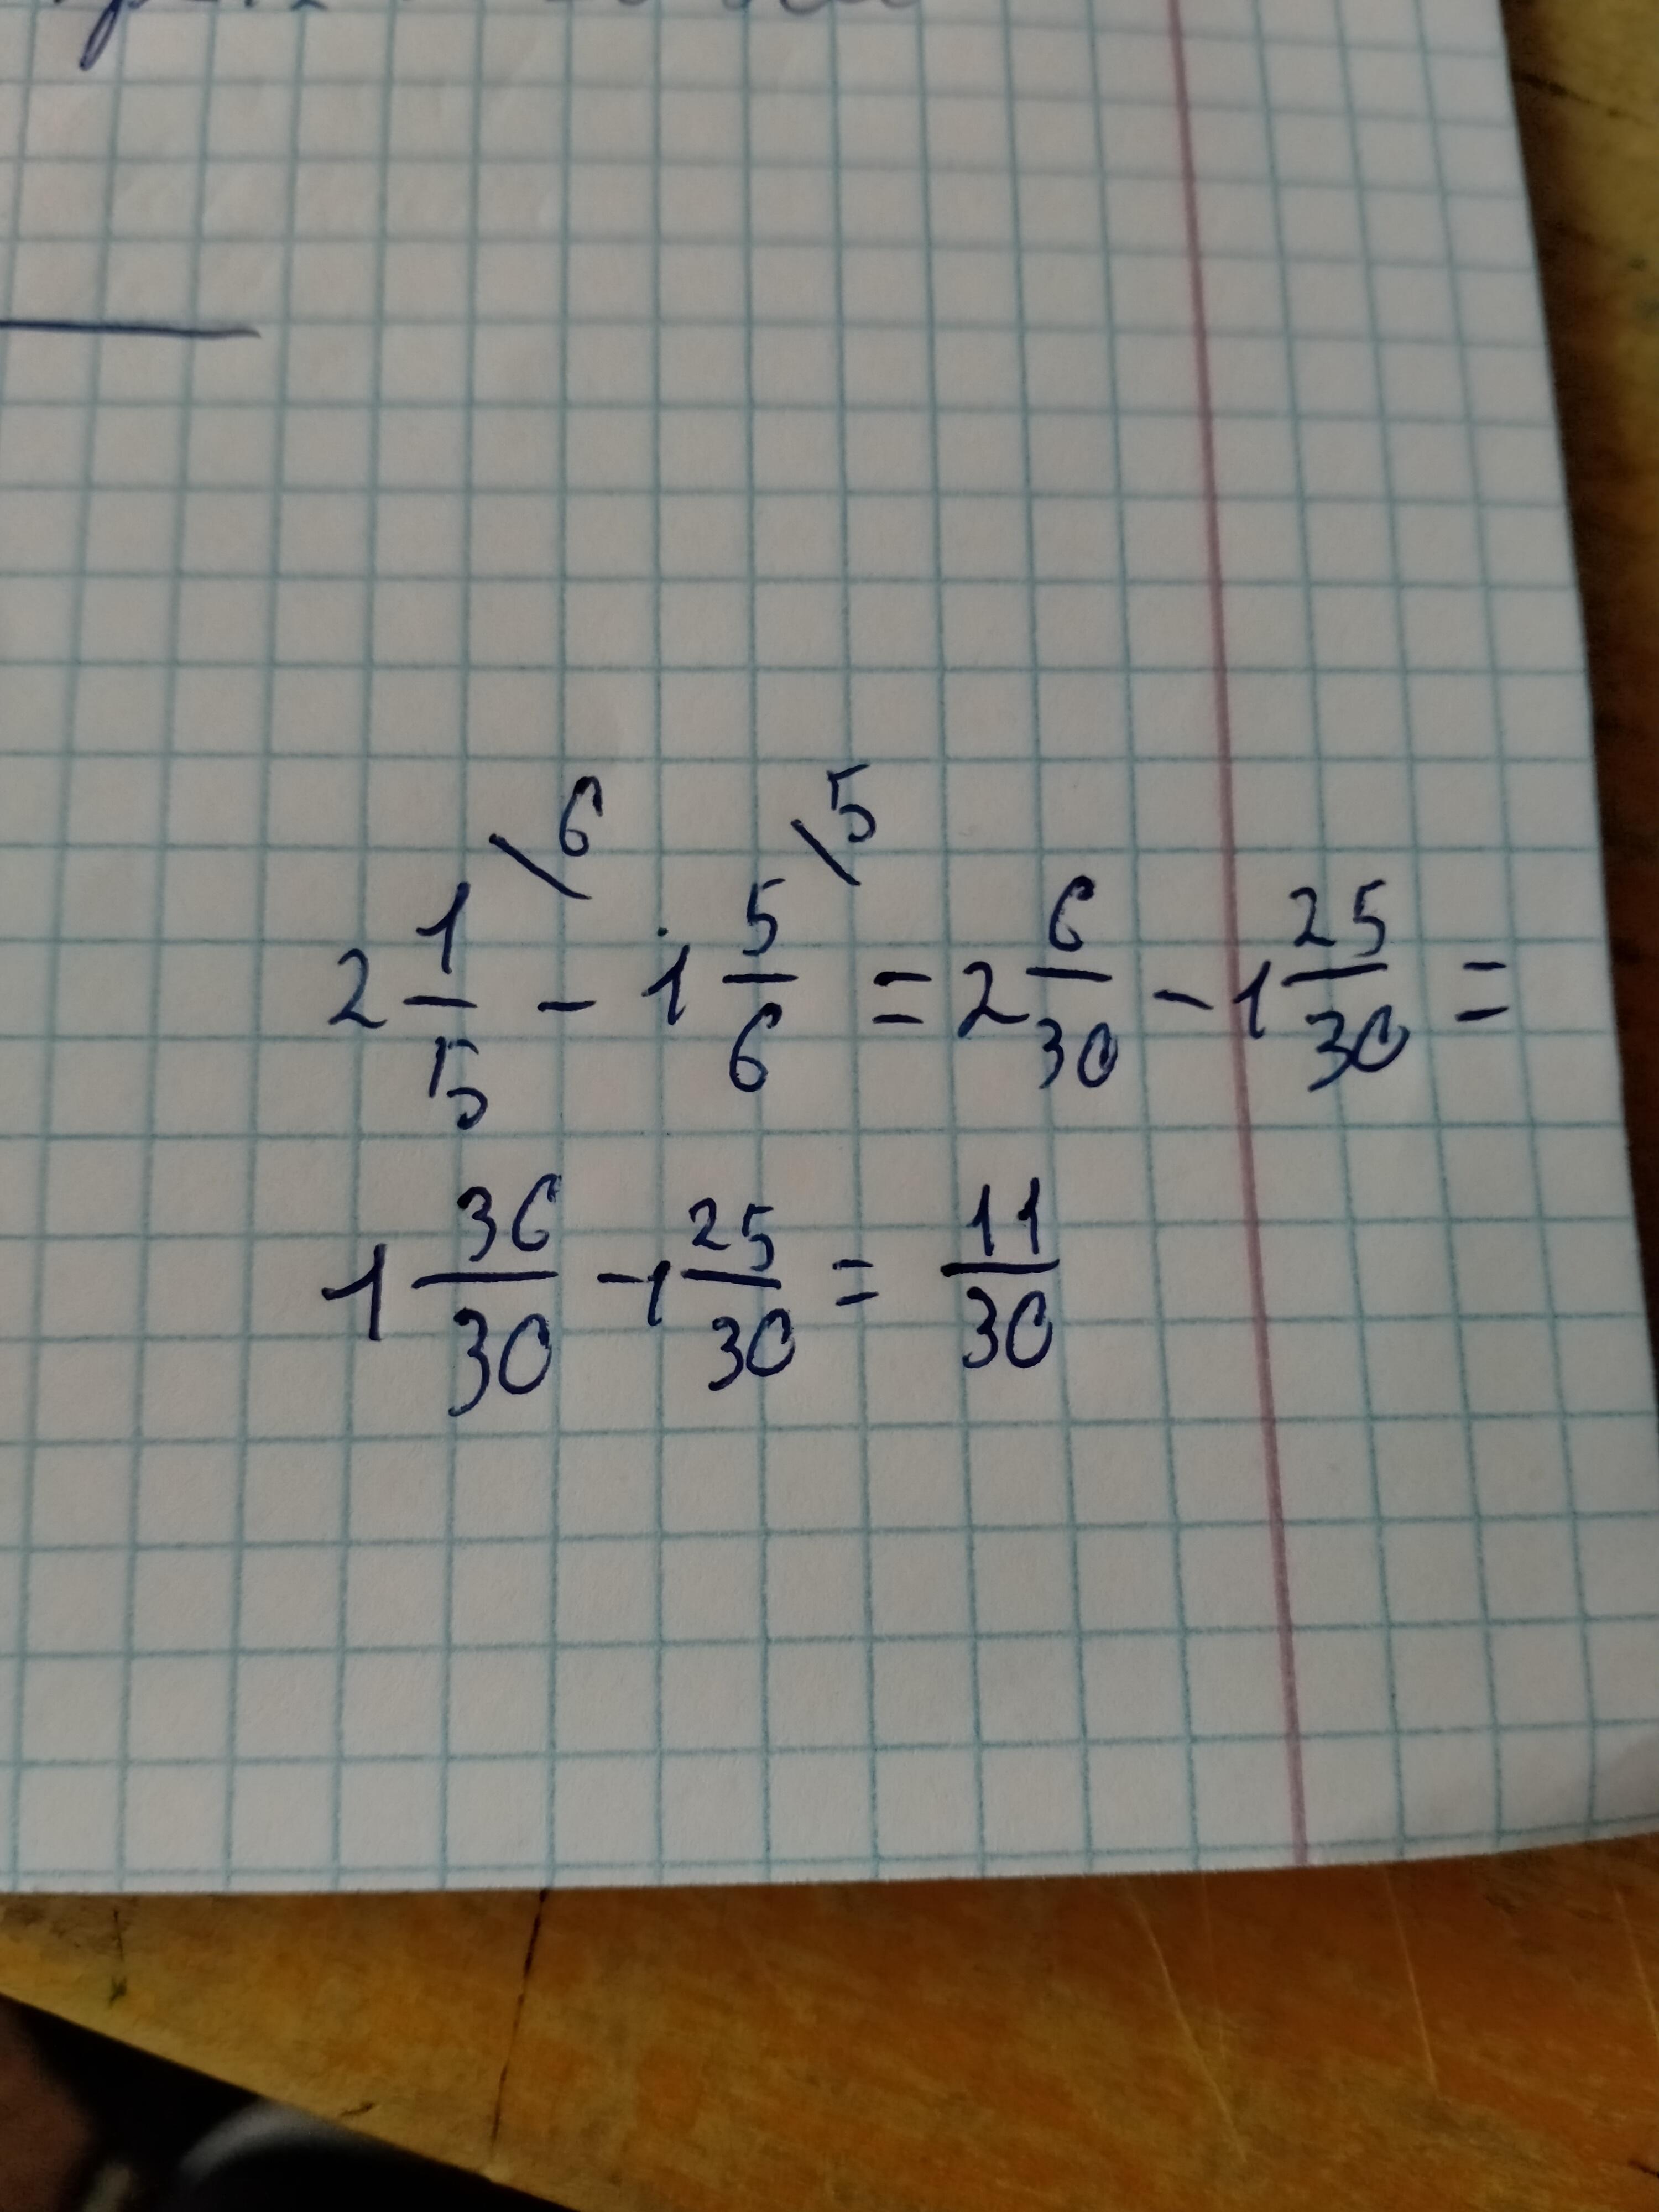 2 1/5 \6 - 1 5/6 \5 = 2 6/30 - 1 25/30 =
1 36/30 - 1 25/30 = 11/30